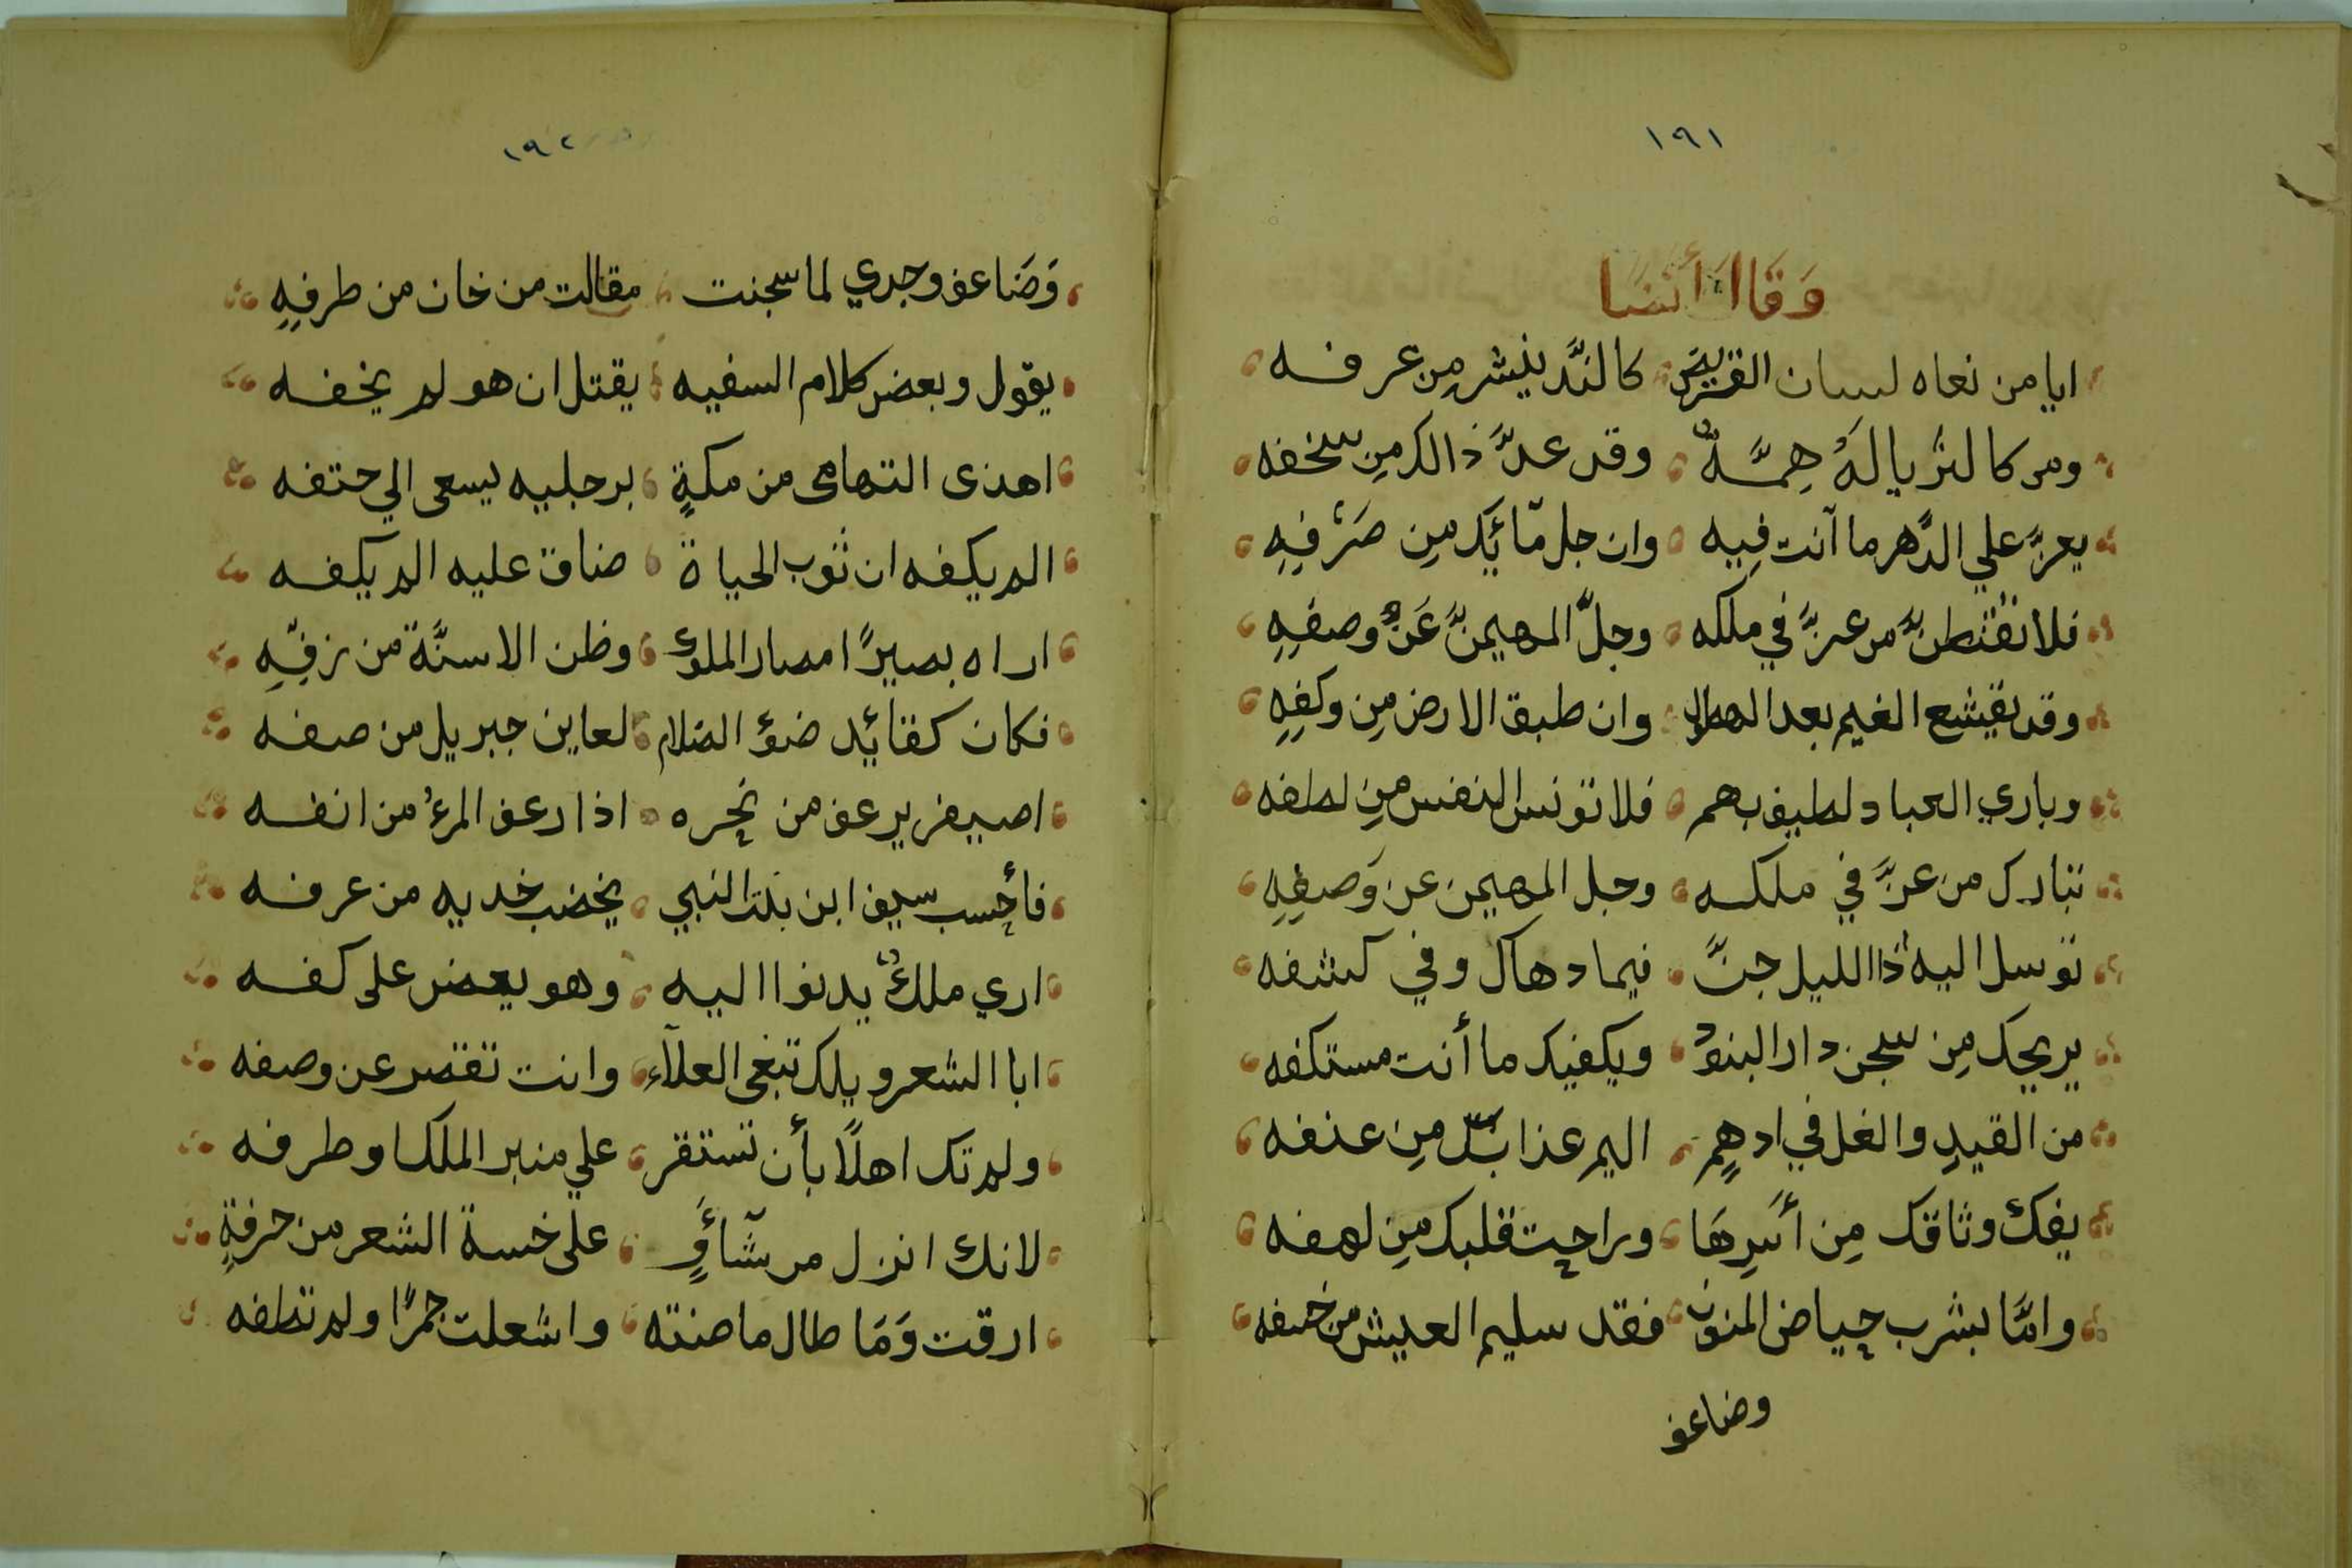 ١٩١
وَقَالَ أَيْضًا
ايا من نعاه لسان القريض كالندَّ ينشر مِن عرفه
ومن كالثريا لَهُ هِمَّةٌ وقد عدَّ ذالك مِن سخفه
يعزَّ علي الدَّهر ما آنت فِيه وان جل مّا ئِك مِن صَرْفِهِ
فلا تقنطنَّ من عزَّ في ملكه وجلَّ المهيمنَّ عَن وصفِهِ
وقد يقشع الغيم بعد الهطال وان طبق الارض مِن وكفِهِ
وباري العباد لطيف بهم فلا تونس النفس مِن لطفه
تبارك من عزَّ في ملكه وجل المهيمن عن وَصفِهِ
توسل اليه ذا الليل جنَّ فيما دهاك وفي كشفه
يريحك مِن سجن دار البنود ويكفيك ما أنت مستكفه
من القيدِ والغل في ادهمٍ اليم عذاب مِن عنفه
يفكّ وثاقك مِن أسَرِهَا وراحت قلبك مِن لهفه
وامَّا بشرب حياض المنون فقد سليم العيش من خسفه
وضاعف
١٩٢
وَضَاعف وجدي لما سجنت مقالت من خان من طرفِهِ
يقول وبعض كلام السفيه يقتل ان هو لم يخفه
اهذى التهامى من مكةٍ برجليه يسعى الي حتفه
الم يكفه ان ثوب الحياة ضاق عليه الم يكفه
اراه بصيرًا امصار الملوك وظن الاسنَّة من زفِّهِ
فكان كقائد ضؤ الضلام لعاين جبريل من صفه
اصيفر يرعف من نحره اذا رعف المرءُ من انفه
فأحسب سيف ابن بنت النبي يخضب خديه من عرفه
اري ملكٌ يدنوا اليه وهو يعض على كفه
ابا الشعر ويلك تبغى العلآء وانت تقصر عن وصفه
ولم تك اهلًا بأن تستقر علي منبر الملك او طرفه
لانك انزل من شآءوٍ على خسة الشعر من حرفةٍ
ارقت وَمَا طال ما صنته واشعلت جمرًا ولم تطفه